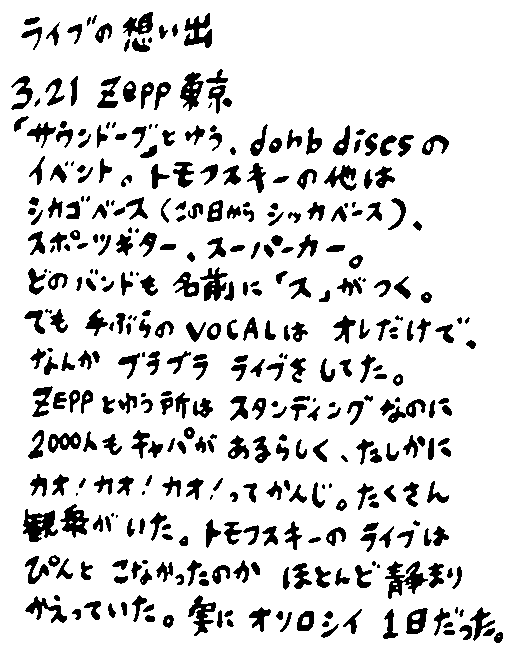 ライブの想い出
3.21 ZEPP東京
「サウンドーブ」とゆう、dohb discsの
イベント。トモフスキーの他は
シカゴベース(この日から シッカベース)、
スポーツギター、スーパーカー。
どのバンドも 名前に「ス」がつく。
でも 手ぶらのVOCALは オレだけで、
なんか ブラブラ ライブをしてた。
ZEPPとゆう所は スタンディングなのに
2000人もキャパが あるらしく、たしかに
カオ!カオ!カオ!ってかんじ。たくさん
観衆がいた。トモフスキーの ライブは
ぴんと こなかったのか ほとんど静まり
かえっていた。実に オソロシイ 1日だった。